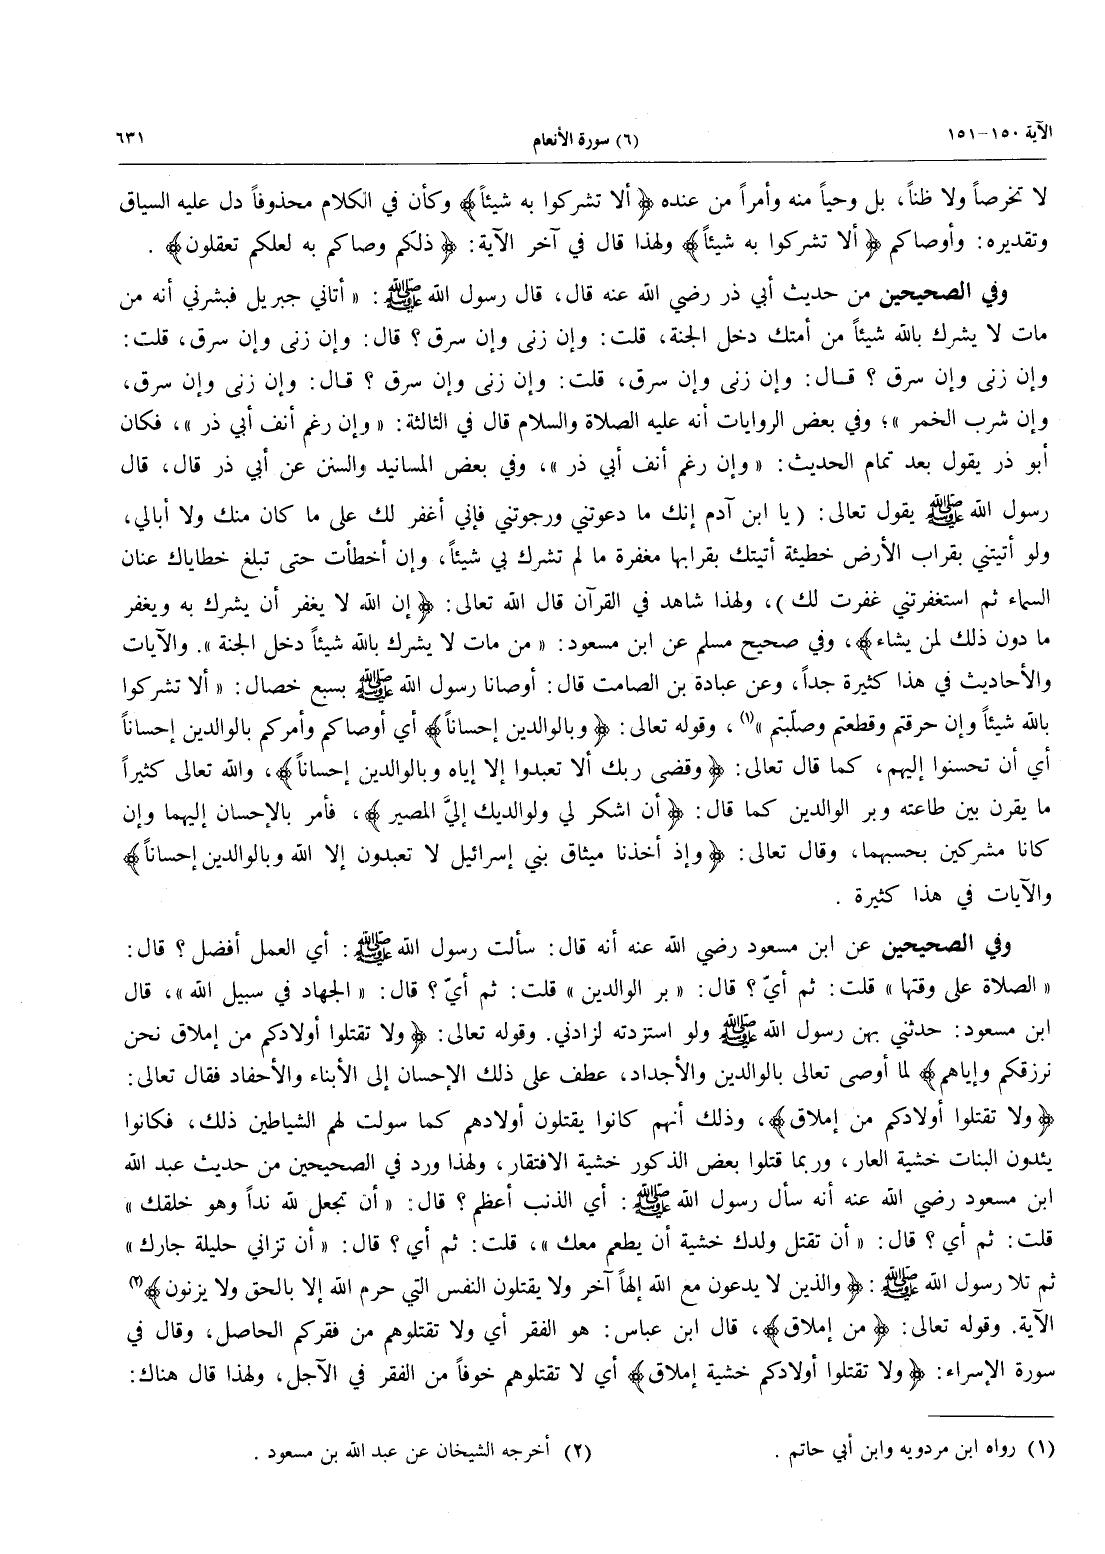 الآية ١٥٠-١٥١
(٦) سورة الأنعام
٦٣١
لا تخرصاً ولا ظناً، بل وحياً منه وأمراً من عنده ﴿ ألا تشركوا به شيئاً﴾ وكأن في الكلام محذوفاً دل عليه السياق
وتقديره: وأوصاكم ﴿ ألا تشركوا به شيئاً﴾ ولهذا قال في آخر الآية: ﴿ ذلكم وصاكم به لعلكم تعقلون﴾ .
وفي الصحيحين من حديث أبي ذر رضي الله عنه قال، قال رسول الله ﷺ : « أتاني جبريل فبشرني أنه من
مات لا يشرك بالله شيئاً من أمتك دخل الجنة، قلت: وإن زنى وإن سرق ؟ قال: وإن زنى وإن سرق، قلت:
وإن زنى وإن سرق ؟ قـال: وإن زنى وإن سرق، قلت: وإن زنى وإن سرق ؟ قـال: وإن زنى وإن سرق،
وإن شرب الخمر »؛ وفي بعض الروايات أنه عليه الصلاة والسلام قال في الثالثة: « وإن رغم أنف أبي ذر »، فكان
أبو ذر يقول بعد تمام الحديث: « وإن رغم أنف أبي ذر »، وفي بعض المسانيد والسنن عن أبي ذر قال، قال
رسول الله ﷺ يقول تعالى: ( يا ابن آدم إنك ما دعوتني ورجوتني فإني أغفر لك على ما كان منك ولا أبالي،
ولو أتيتني بقراب الأرض خطيئة أتيتك بقرابها مغفرة ما لم تشرك بي شيئاً، وإن أخطأت حتى تبلغ خطاياك عنان
السماء ثم استغفرتني غفرت لك )، ولهذا شاهد في القرآن قال الله تعالى: ﴿ إن الله لا يغفر أن يشرك به ويغفر
ما دون ذلك لمن يشاء﴾، وفي صحيح مسلم عن ابن مسعود: « من مات لا يشرك بالله شيئاً دخل الجنة ». والآيات
والأحاديث في هذا كثيرة جداً، وعن عبادة بن الصامت قال: أوصانا رسول الله ﷺ بسبع خصال: « ألا تشركوا
بالله شيئاً وإن حرقتم وقطعتم وصلّبتم »(١) ، وقوله تعالى: ﴿ وبالوالدين إحساناً﴾ أي أوصاكم وأمركم بالوالدين إحساناً
أي أن تحسنوا إليهم، كما قال تعالى: ﴿ وقضى ربك ألا تعبدوا إلا إياه وبالوالدين إحساناً﴾، والله تعالى كثيراً
ما يقرن بين طاعته وبر الوالدين كما قال: ﴿ أن اشكر لي ولوالديك إليَّ المصير ﴾، فأمر بالإحسان إليهما وإن
كانا مشركين بحسبهما، وقال تعالى: ﴿ وإذ أخذنا ميثاق بني إسرائيل لا تعبدون إلا الله وبالوالدين إحساناً﴾
والآيات في هذا كثيرة .
وفي الصحيحين عن ابن مسعود رضي الله عنه أنه قال: سألت رسول الله ﷺ : أي العمل أفضل ؟ قال:
« الصلاة على وقتها » قلت: ثم أيّ ؟ قال: « بر الوالدين » قلت: ثم أيّ ؟ قال: « الجهاد في سبيل الله »، قال
ابن مسعود: حدثني بهن رسول الله ﷺ ولو استزدته لزادني. وقوله تعالى: ﴿ ولا تقتلوا أولادكم من إملاق نحن
نرزقكم وإياهم﴾ لما أوصى تعالى بالوالدين والأجداد، عطف على ذلك الإحسان إلى الأبناء والأحفاد فقال تعالى:
﴿ ولا تقتلوا أولادكم من إملاق﴾، وذلك أنهم كانوا يقتلون أولادهم كما سولت لهم الشياطين ذلك، فكانوا
يئدون البنات خشية العار، وربما قتلوا بعض الذكور خشية الافتقار، ولهذا ورد في الصحيحين من حديث عبد الله
ابن مسعود رضي الله عنه أنه سأل رسول الله ﷺ : أي الذنب أعظم ؟ قال: « أن تجعل لله نداً وهو خلقك »
قلت: ثم أي ؟ قال: « أن تقتل ولدك خشية أن يطعم معك »، قلت: ثم أي ؟ قال: « أن تزاني حليلة جارك »
ثم تلا رسول الله ﷺ : ﴿ والذين لا يدعون مع الله إلهاً آخر ولا يقتلون النفس التي حرم الله إلا بالحق ولا يزنون ﴾(٢)
الآية. وقوله تعالى: ﴿ من إملاق﴾، قال ابن عباس: هو الفقر أي ولا تقتلوهم من فقركم الحاصل، وقال في
سورة الإسراء: ﴿ ولا تقتلوا أولادكم خشية إملاق﴾ أي لا تقتلوهم خوفاً من الفقر في الآجل، ولهذا قال هناك:
(١) رواه ابن مردويه وابن أبي حاتم .
(٢) أخرجه الشيخان عن عبد الله بن مسعود .